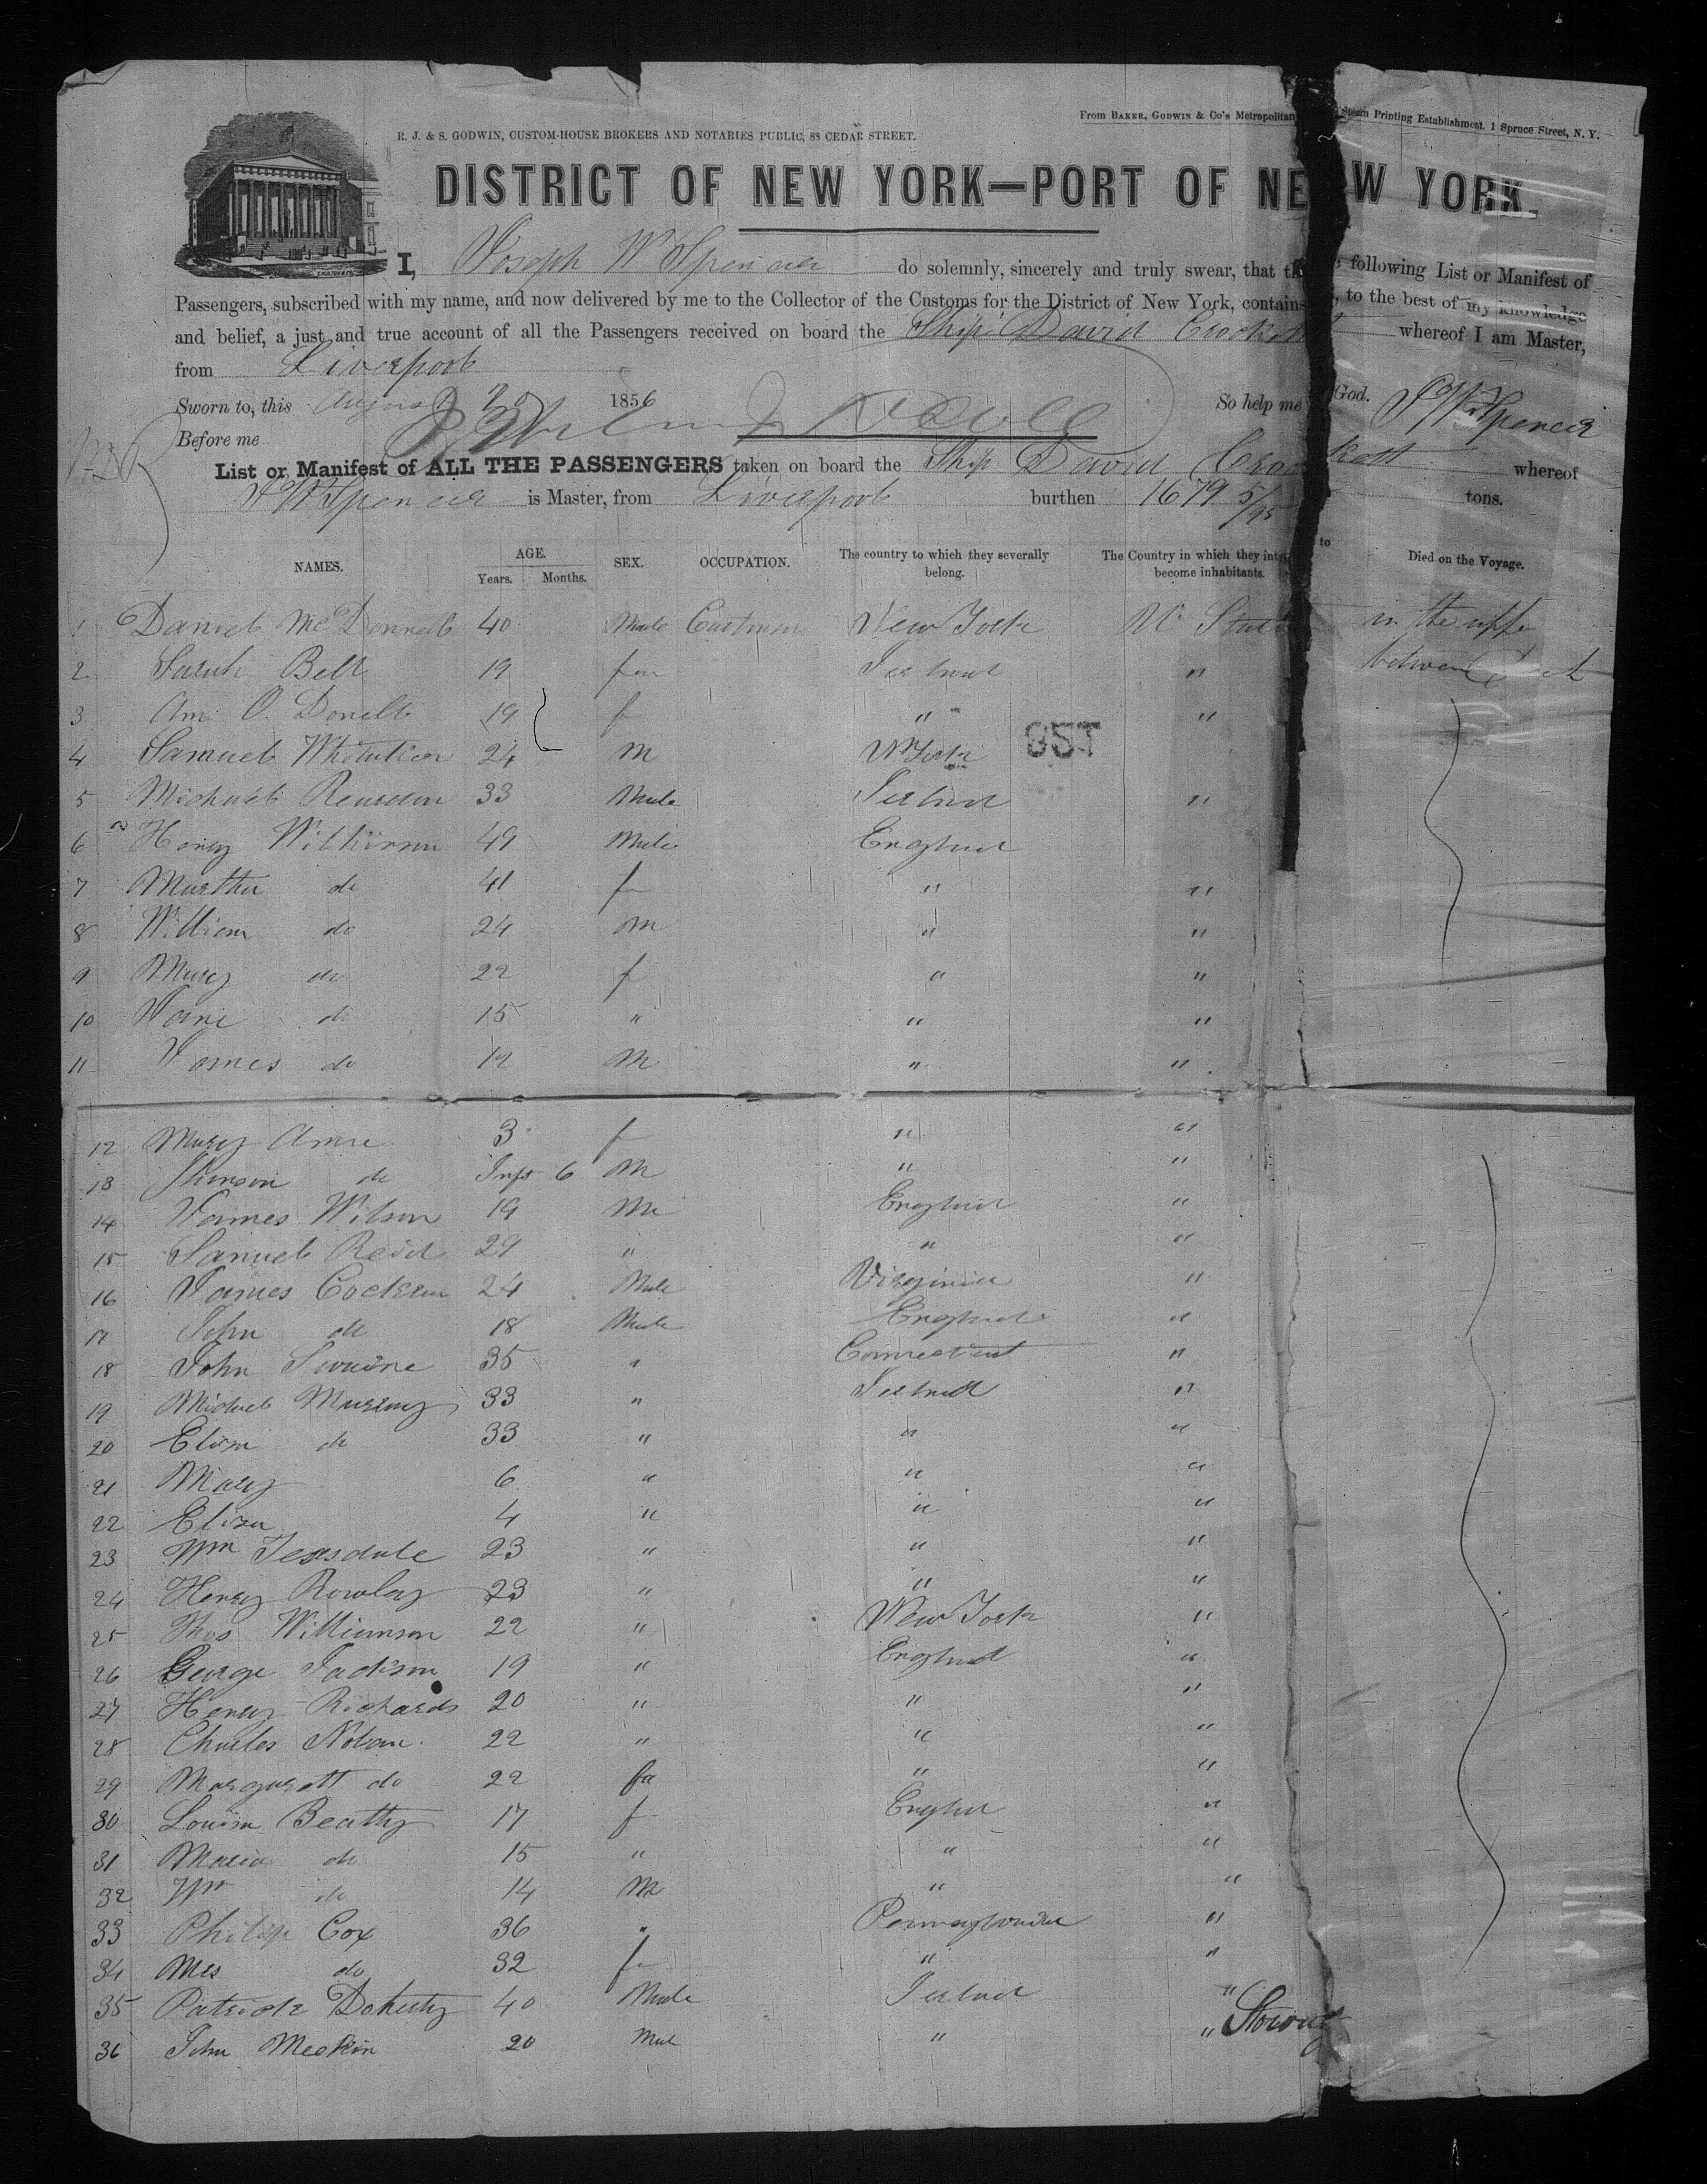 From BAKER, GODWIN & Co's Metropolitan Steam Printing Establishment. 1 Spruce Street, N. Y.
R. J. & S. GODWIN, CUSTOM-HOUSE BROKERS AND NOTARIES PUBLIC, 88 CEDAR STREET.
DISTRICT OF NEW YORK—PORT OF NEW YORK.
I, Joseph W Spencer do solemnly, sincerely and truly swear, that the following List or Manifest of
Passengers, subscribed with my name, and now delivered by me to the Collector of the Customs for the District of New York, contains, to the best of my knowledge
and belief, a just and true account of all the Passengers received on board the Ship David Crockett whereof I am Master,
from Liverpool
Sworn to, this August 20 1856 So help me God. J W Spencer
Before me
List or Manifest of ALL THE PASSENGERS taken on board the Ship David Crockett whereof
J W Spencer is Master, from Liverpool burthen 1679 5/95 tons.
NAMES. AGE. Years. Months. SEX. OCCUPATION. The country to which they severally belong. The Country in which they intend to become inhabitants. Died on the Voyage.
1 Daniel McDonnell 40 Male New York U. States in the upper
2 Sarah Bell 19 fem Ireland " between
3 O. Donell 19 f " "
4 Samuel 24 M N York
857
5 Michael Reardon 33 Male Ireland "
6 Henry Wilkinson 49 Male England
7 Martha do 41 f " "
8 William do 24 M " "
9 Mary do 22 f " "
10 Jane do 15 " " "
11 James do 12 M " "
12 Mary Anne 3 f " "
13 do Inft 6 M " "
14 James Wilson 19 M England "
15 Samuel Reid 29 " " "
16 James Cockran 24 Male Virginia "
17 John do 18 Male England "
18 John Swaine 35 " Connecticut "
19 Michael Murray 33 " Ireland "
20 Eliza do 33 " " "
21 Mary 6 " " "
22 Eliza 4 " " "
23 Wm Teasdale 23 " " "
24 Henry Rowley 23 " " "
25 Thos Williamson 22 " New York "
26 George Jackson 19 " England "
27 Henry Richards 20 " " "
28 Charles Nolan 22 " " "
29 Margarett do 22 fe " "
30 Louisa Beatty 17 f England "
31 Maria do 15 " " "
32 Wm do 14 M " "
33 Philip Cox 36 " Pennsylvania "
34 Mrs do 32 f " "
35 Patrick Doherty 40 Male Ireland "
36 John Meekin 20 Male " "